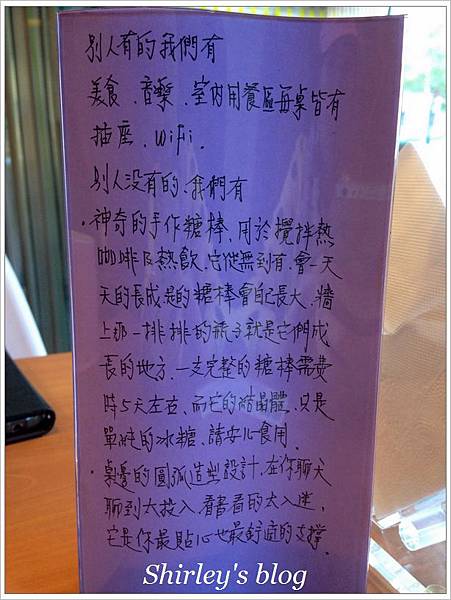 別人有的我們有
美食、音樂、室內用餐區每桌皆有
插座、wifi.
別人沒有的、我們有
•神奇的手作糖棒、用於攪拌熱
咖啡及熱飲、它從無到有、會一天
天的長成.是的糖棒會自己長大、牆
上那一排排的瓶子就是它們成
長的地方、一支完整的糖棒需費
時5天左右、而它的結晶體、只是
單純的冰糖、請安心食用.
•桌邊的圓弧造型設計、在你聊天
聊到太投入、看書看的太入迷、
它是你最貼心也最舒適的支撐.
Shirley's blog